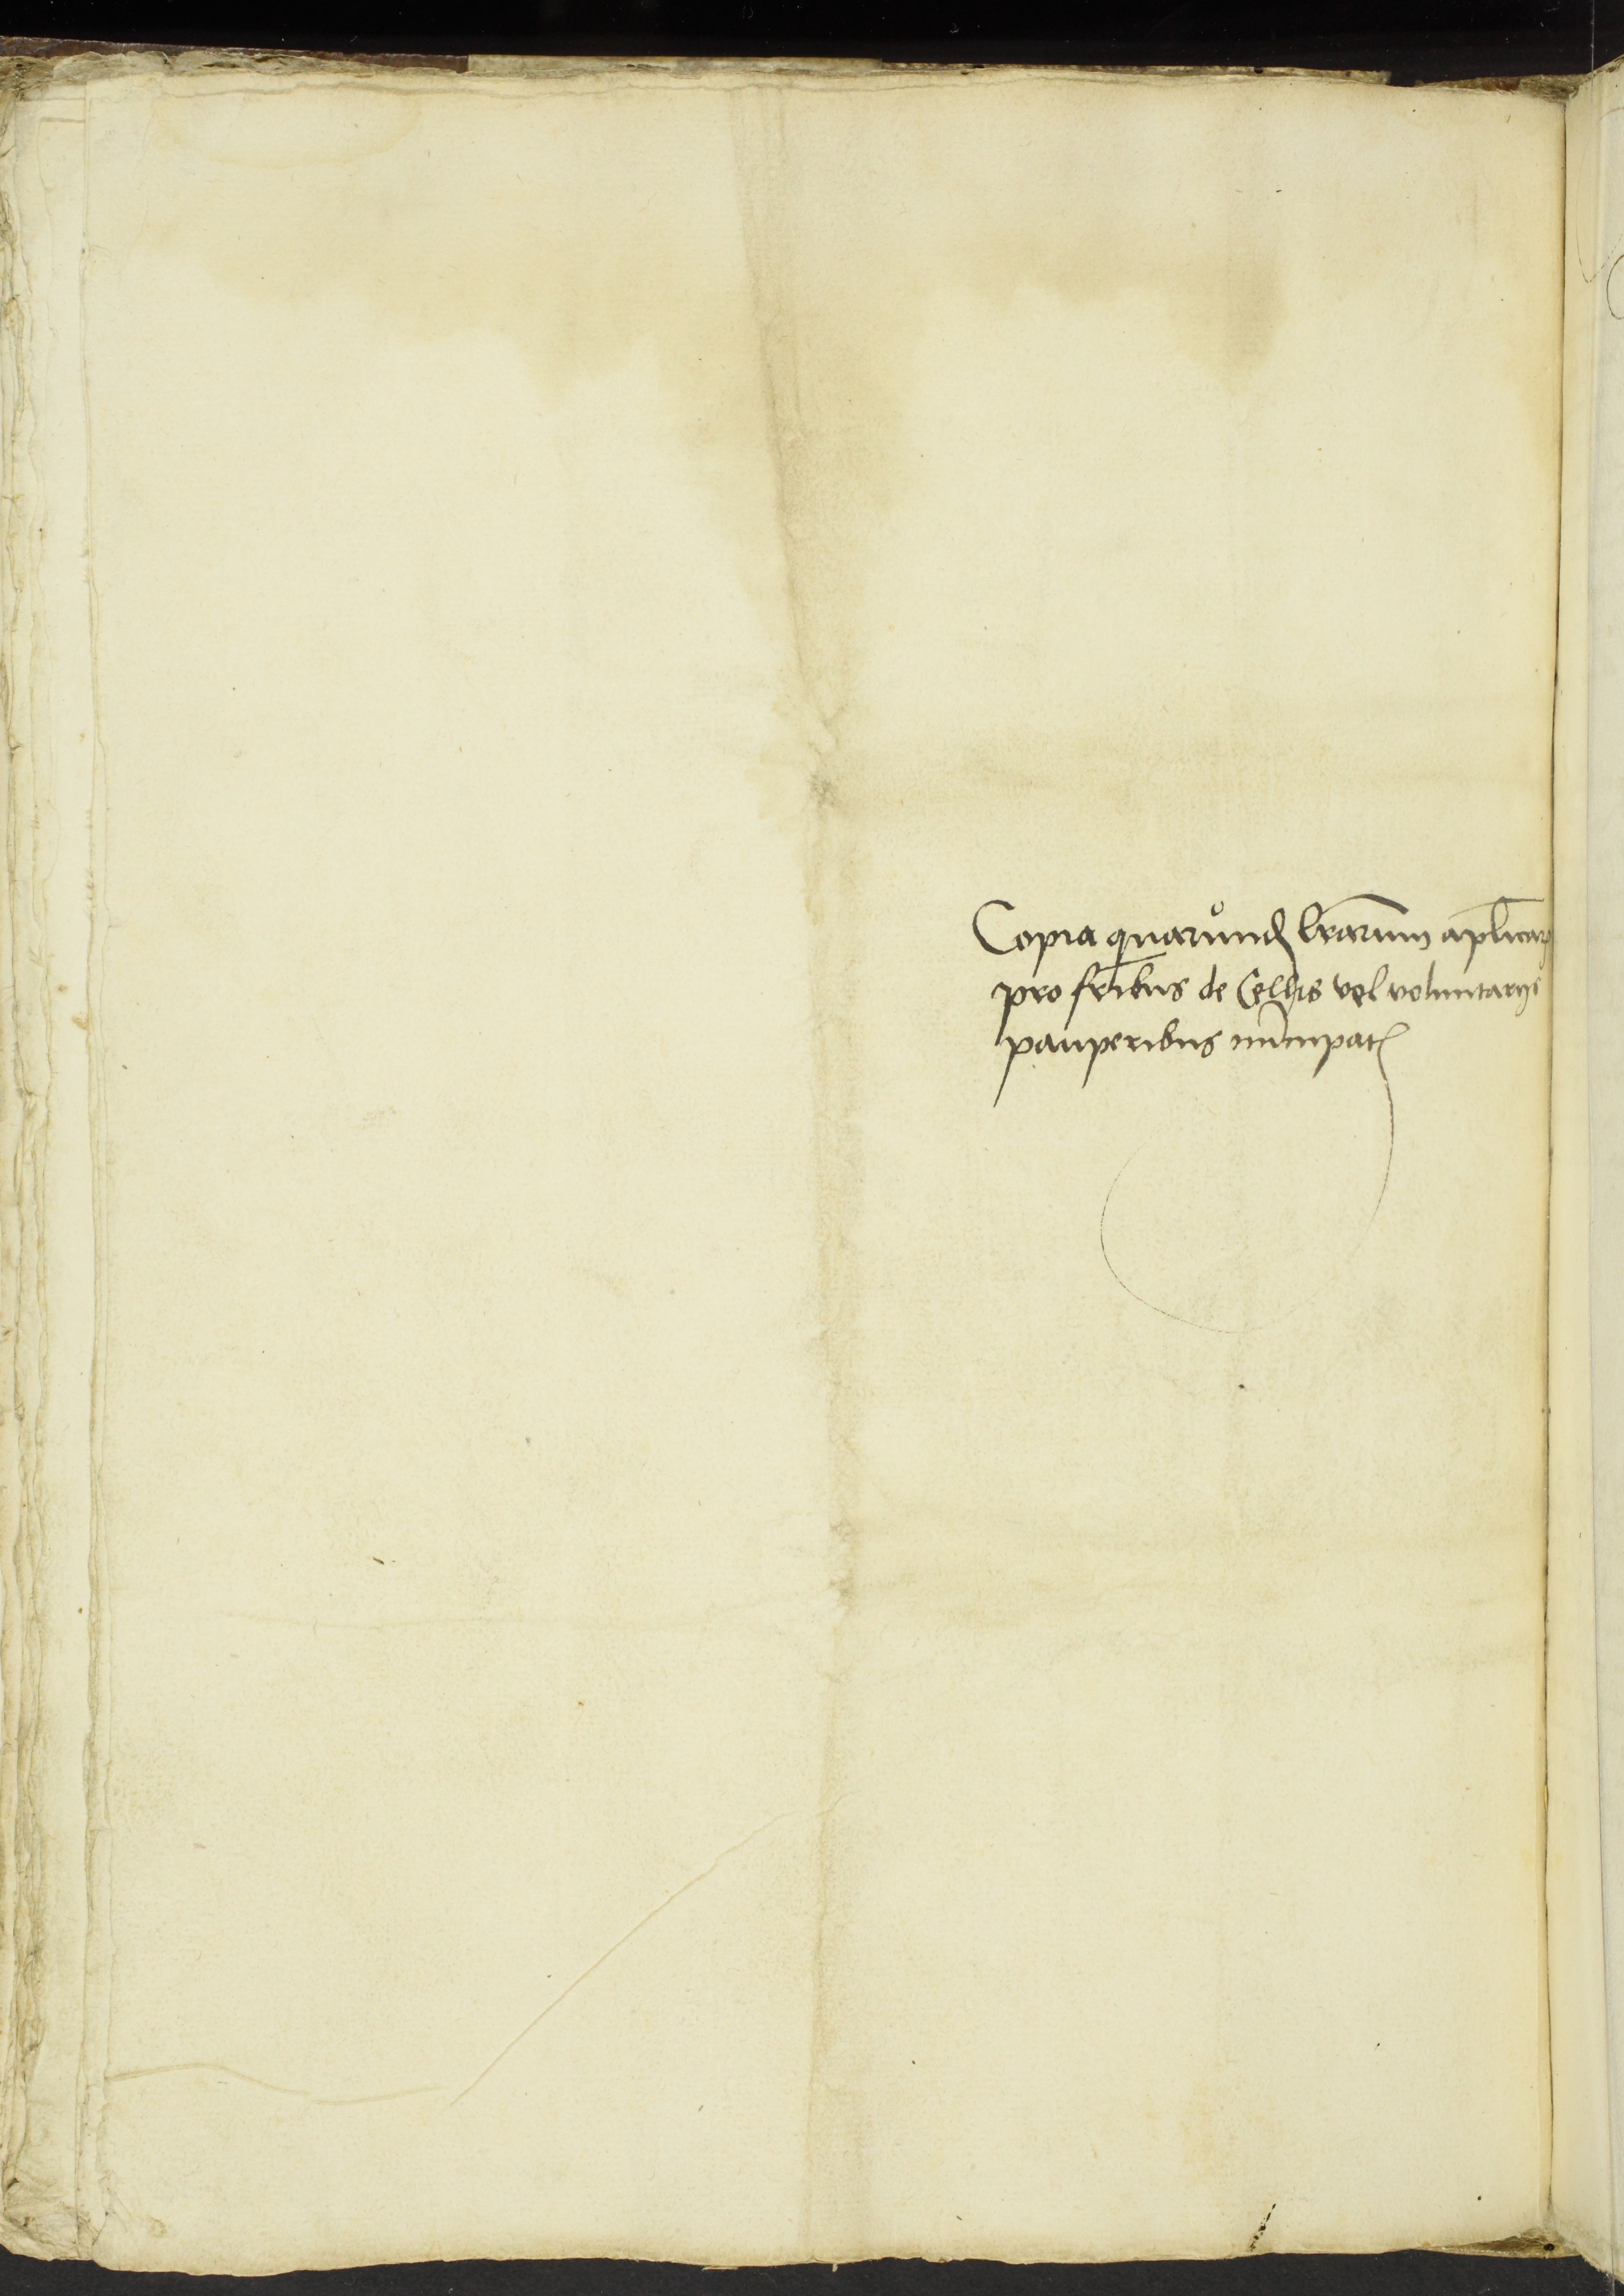 Copia quarund lrarum aplicar
pro fribus de Cellis vel voluntarijs
pauperibus nūcupat